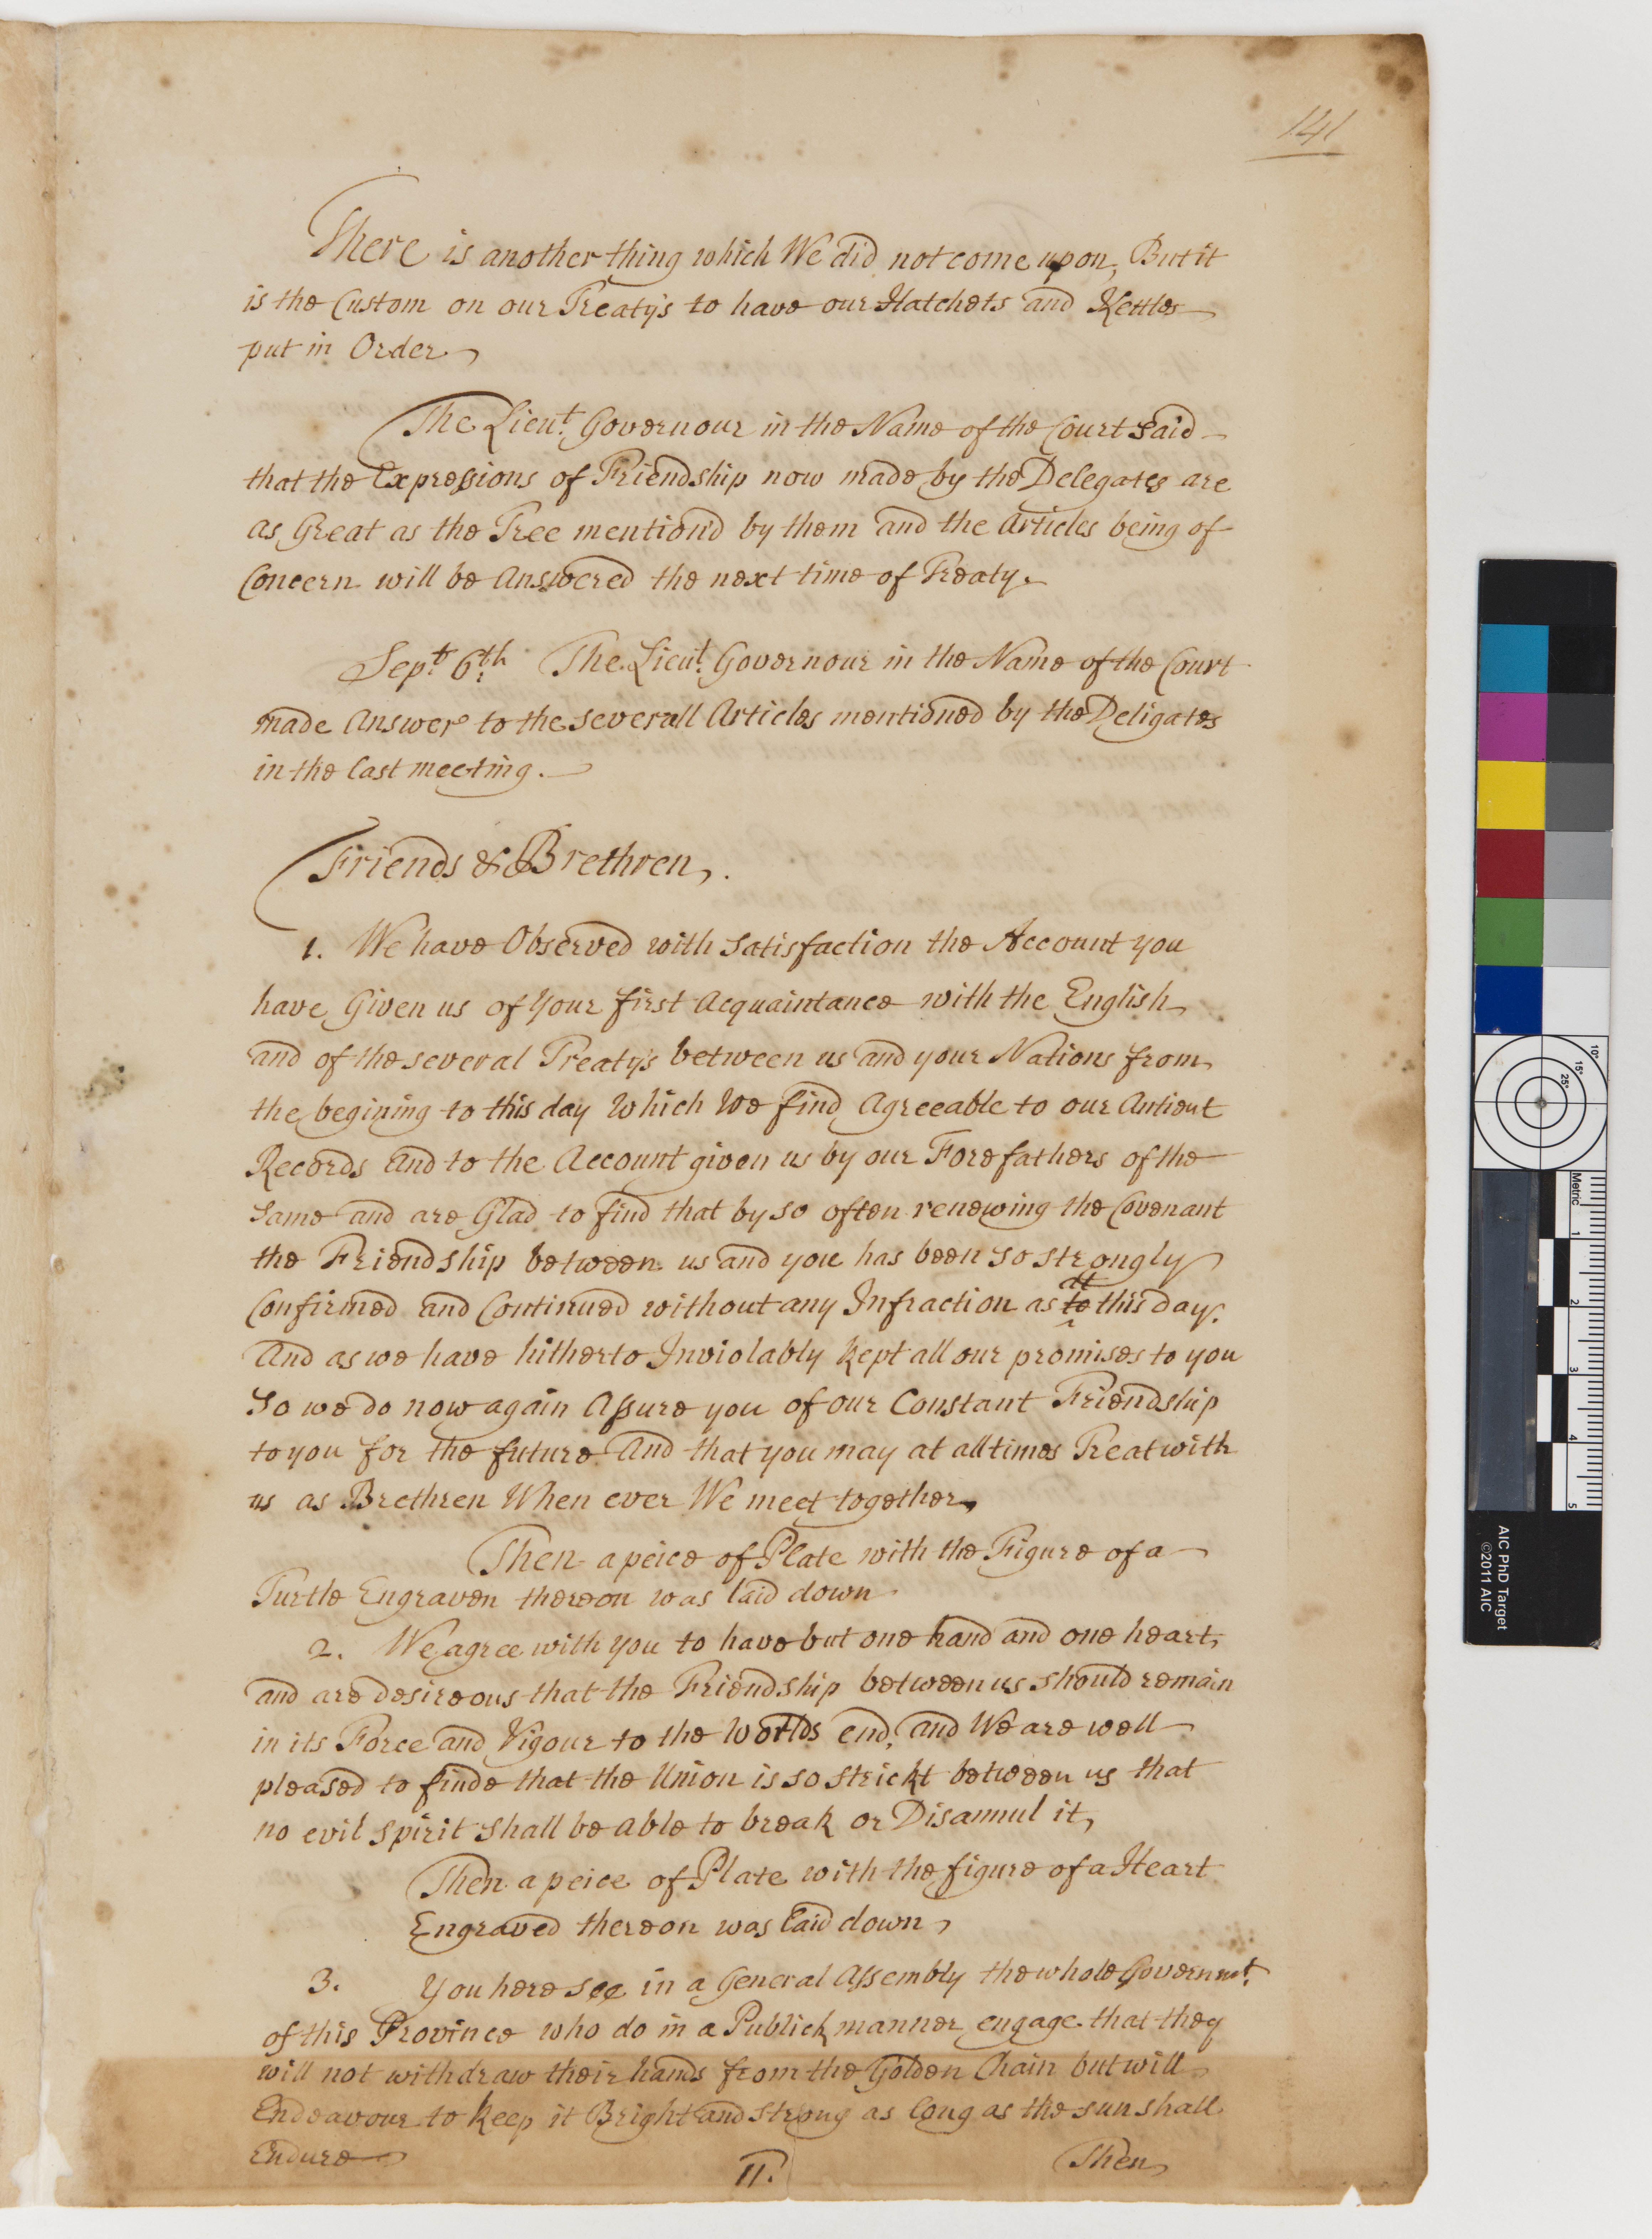 141
There is another thing which We did not come upon, But it
is the Custom on our Treaty's to have our Hatchets and Kettles
put in Order
The Lieut. Governour in the Name of the Court Said
that the Expressions of Friendship now made by the Delegates are
as Great as the Tree mention'd by them and the Articles being of
Concern will be Answered the next time of Treaty.
Sept. 6th. The Lieut. Governour in the Name of the Court
made Answer to the severall Articles mentioned by the Deligates
in the last meeting.
Friends & Brethren,.
1. We have Observed with Satisfaction the Account you
have Given us of Your first Acquaintance with the English
and of the several Treaty's between us and your Nations from
the begining to this day Which We find Agreeable to our Antient
Records And to the Account given us by our Forefathers of the
Same and are Glad to find that by so often renewing the Covenant
the Friendship between us and you has been so strongly
Confirmed and Continued without any Infraction as to at this day.
And as we have hitherto Inviolably kept all our promises to you
So we do now again Assure you of our Constant Friendship
to you for the future And that you may at all times Treat with
us as Brethren When ever We meet together,
Then a peice of Plate with the Figure of a
Turtle Engraven thereon was laid down
2. We agree with you to have but one hand and one heart,
and are desireous that the Friendship between us should remain
in its Force and Vigour to the Worlds end, and We are well
pleased to finde that the Union is so strickt between us that
no evil spirit shall be able to break or Disannul it,
Then a peice of Plate with the figure of a Heart
Engraved thereon was laid down,
3. You here see in a General Assembly the whole Governmt.
of this Province who do in a Publick manner engage that they
will not withdraw their hands from the Golden Chain but will
Endeavour to keep it Bright and strong as long as the sun shall
Endure
11. Then
10°
15°
25°
Metric
1
2
3
4
5
AIC PhD Target
©2011 AIC